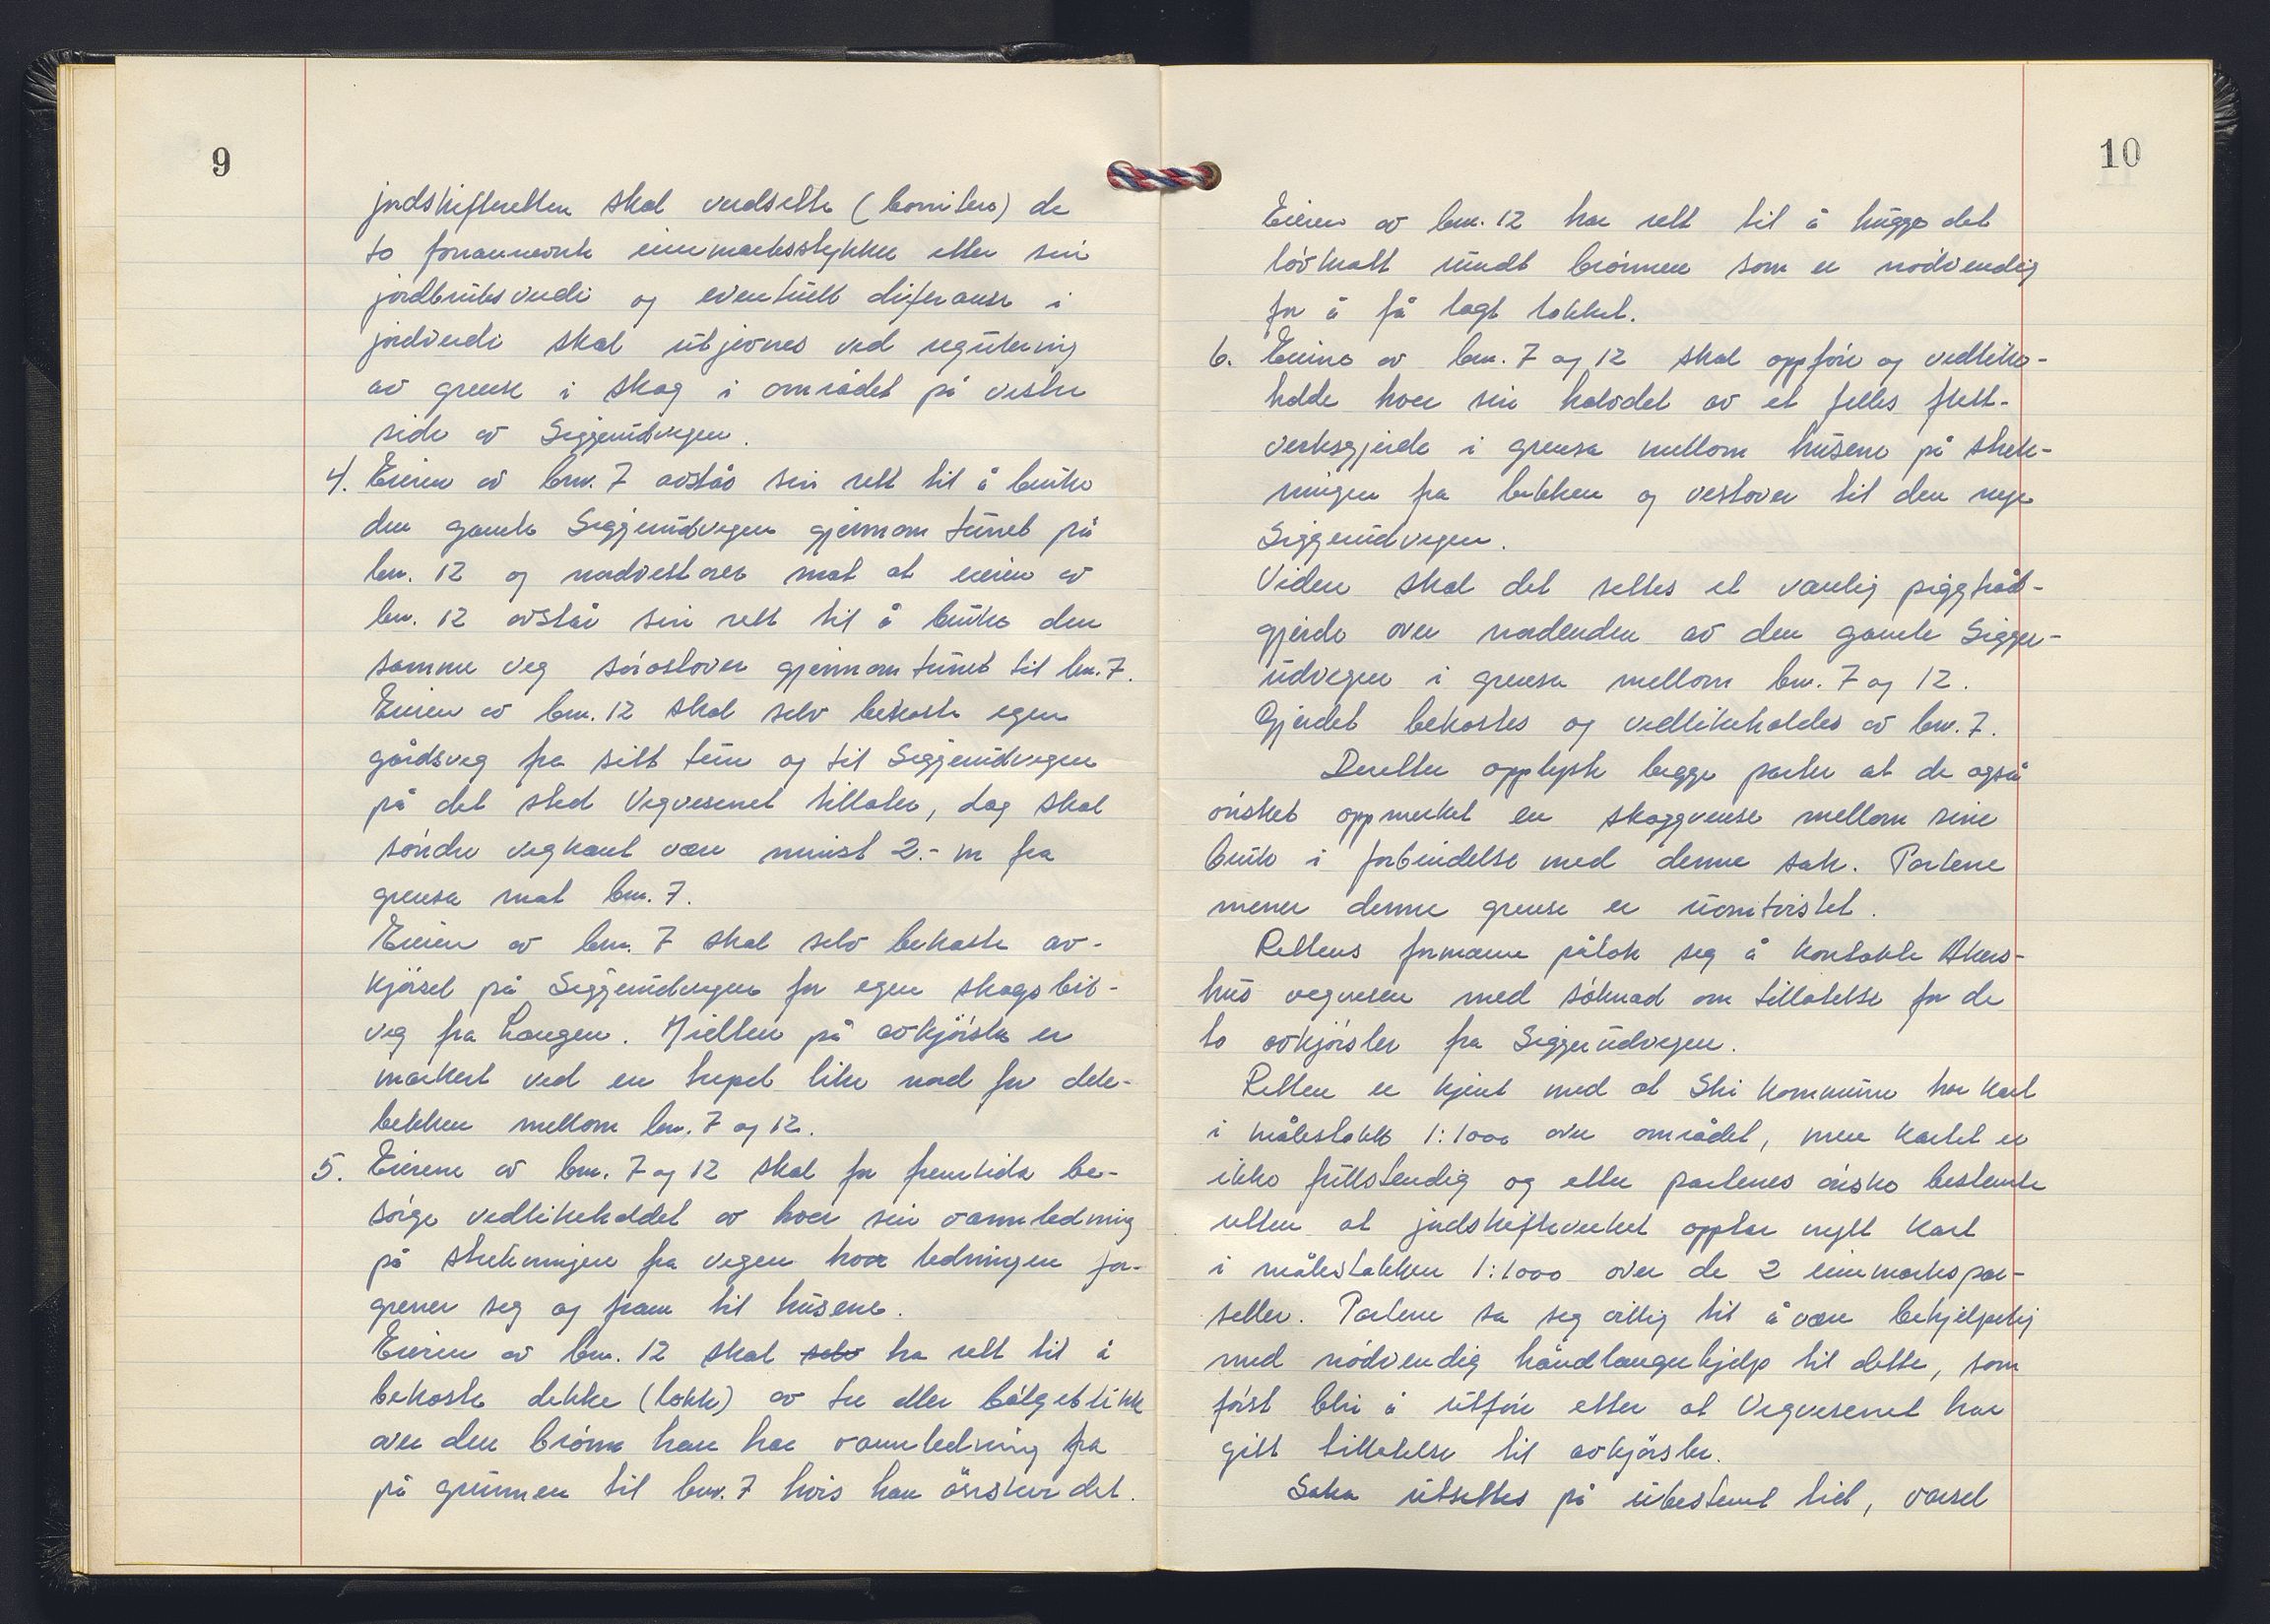 9
jordskifteretten skal verdsette (bonitere) de
to forannevnte innmarksstykker etter sin
jordbruksverdi og eventuelt diferanse i
jordverdi skal utjevnes ved regulering
av grense i skog i området på vestre
side av Siggerudvegen.
4. Eieren av bnr. 7 avstår sin rett til å bruke
den gamle Siggerudvegen gjennom tunet på
bnr. 12 og nordvestover mot at eieren av
bnr. 12 avstår sin rett til å bruke den
samme veg sörostover gjennom tunet til bnr. 7.
Eieren av bnr. 12 skal selv bekoste egen
gårdsveg fra sitt tun og til Siggerudvegen
på det sted Vegvesenet tillater, dog skal
söndre vegkant være minst 2.- m fra
grensa mot bnr. 7.
Eieren av bnr. 7 skal selv bekoste av-
kjörsel på Siggerudvegen for egen skogsbil-
veg fra Langen. Midten på avkjörsla er
markert ved en trepel like nord for dele-
bekken mellom bnr. 7 og 12.
5. Eierene av bnr. 7 og 12 skal for fremtida be-
sörge vedlikeholdet av hver sin vannledning
på strekningen fra vegen hvor ledningen for-
grener seg og fram til husene.
Eieren av bnr. 12 skal selv ha rett til å
bekoste dekke (lokk) av tre eller bölgeblikk
over den brönn han har vannledning fra
på grunnen til bnr. 7 hvis han önsker det.
10
Eieren av bnr. 12 har rett til å hugge det
lövkratt rundt brönnen som er nödvendig
for å få lagt lokket.
6. Eierene av bnr. 7 og 12 skal oppföre og vedlike-
holde hver sin halvdel av et felles flett-
verksgjerde i grensa mellom husene på strek-
ningen fra bekken og vestover til den nye
Siggerudvegen.
Videre skal det settes et vanlig piggtråd-
gjerde over nordenden av den gamle Sigger-
udvegen i grensa mellom bnr. 7 og 12.
Gjerdet bekostes og vedlikeholdes av bnr. 7.
Deretter opplyste begge parter at de også
önsket oppmerket en skoggrense mellom sine
bruk i forbindelse med denne sak. Partene
mener denne grense er uomtvistet.
Rettens formann påtok seg å kontakte Akers-
hus vegvesen med söknad om tillatelse for de
to avkjörsler fra Siggerudvegen.
Retten er kjent med at Ski kommune har kart
i målestokk 1:1000 over området, men kartet er
ikke fullstendig og etter partenes önske bestemte
retten at jordskifteverket opptar nytt kart
i målestokken 1:1000 over de 2 innmarkspar-
seller. Partene sa seg villig til å være behjelpelig
med nödvendig håndlangerhjelp til dette, som
först blir å utföre etter at Vegvesenet har
gitt tillatelse til avkjörsler.
Saka utsettes på ubestemt tid, varsel